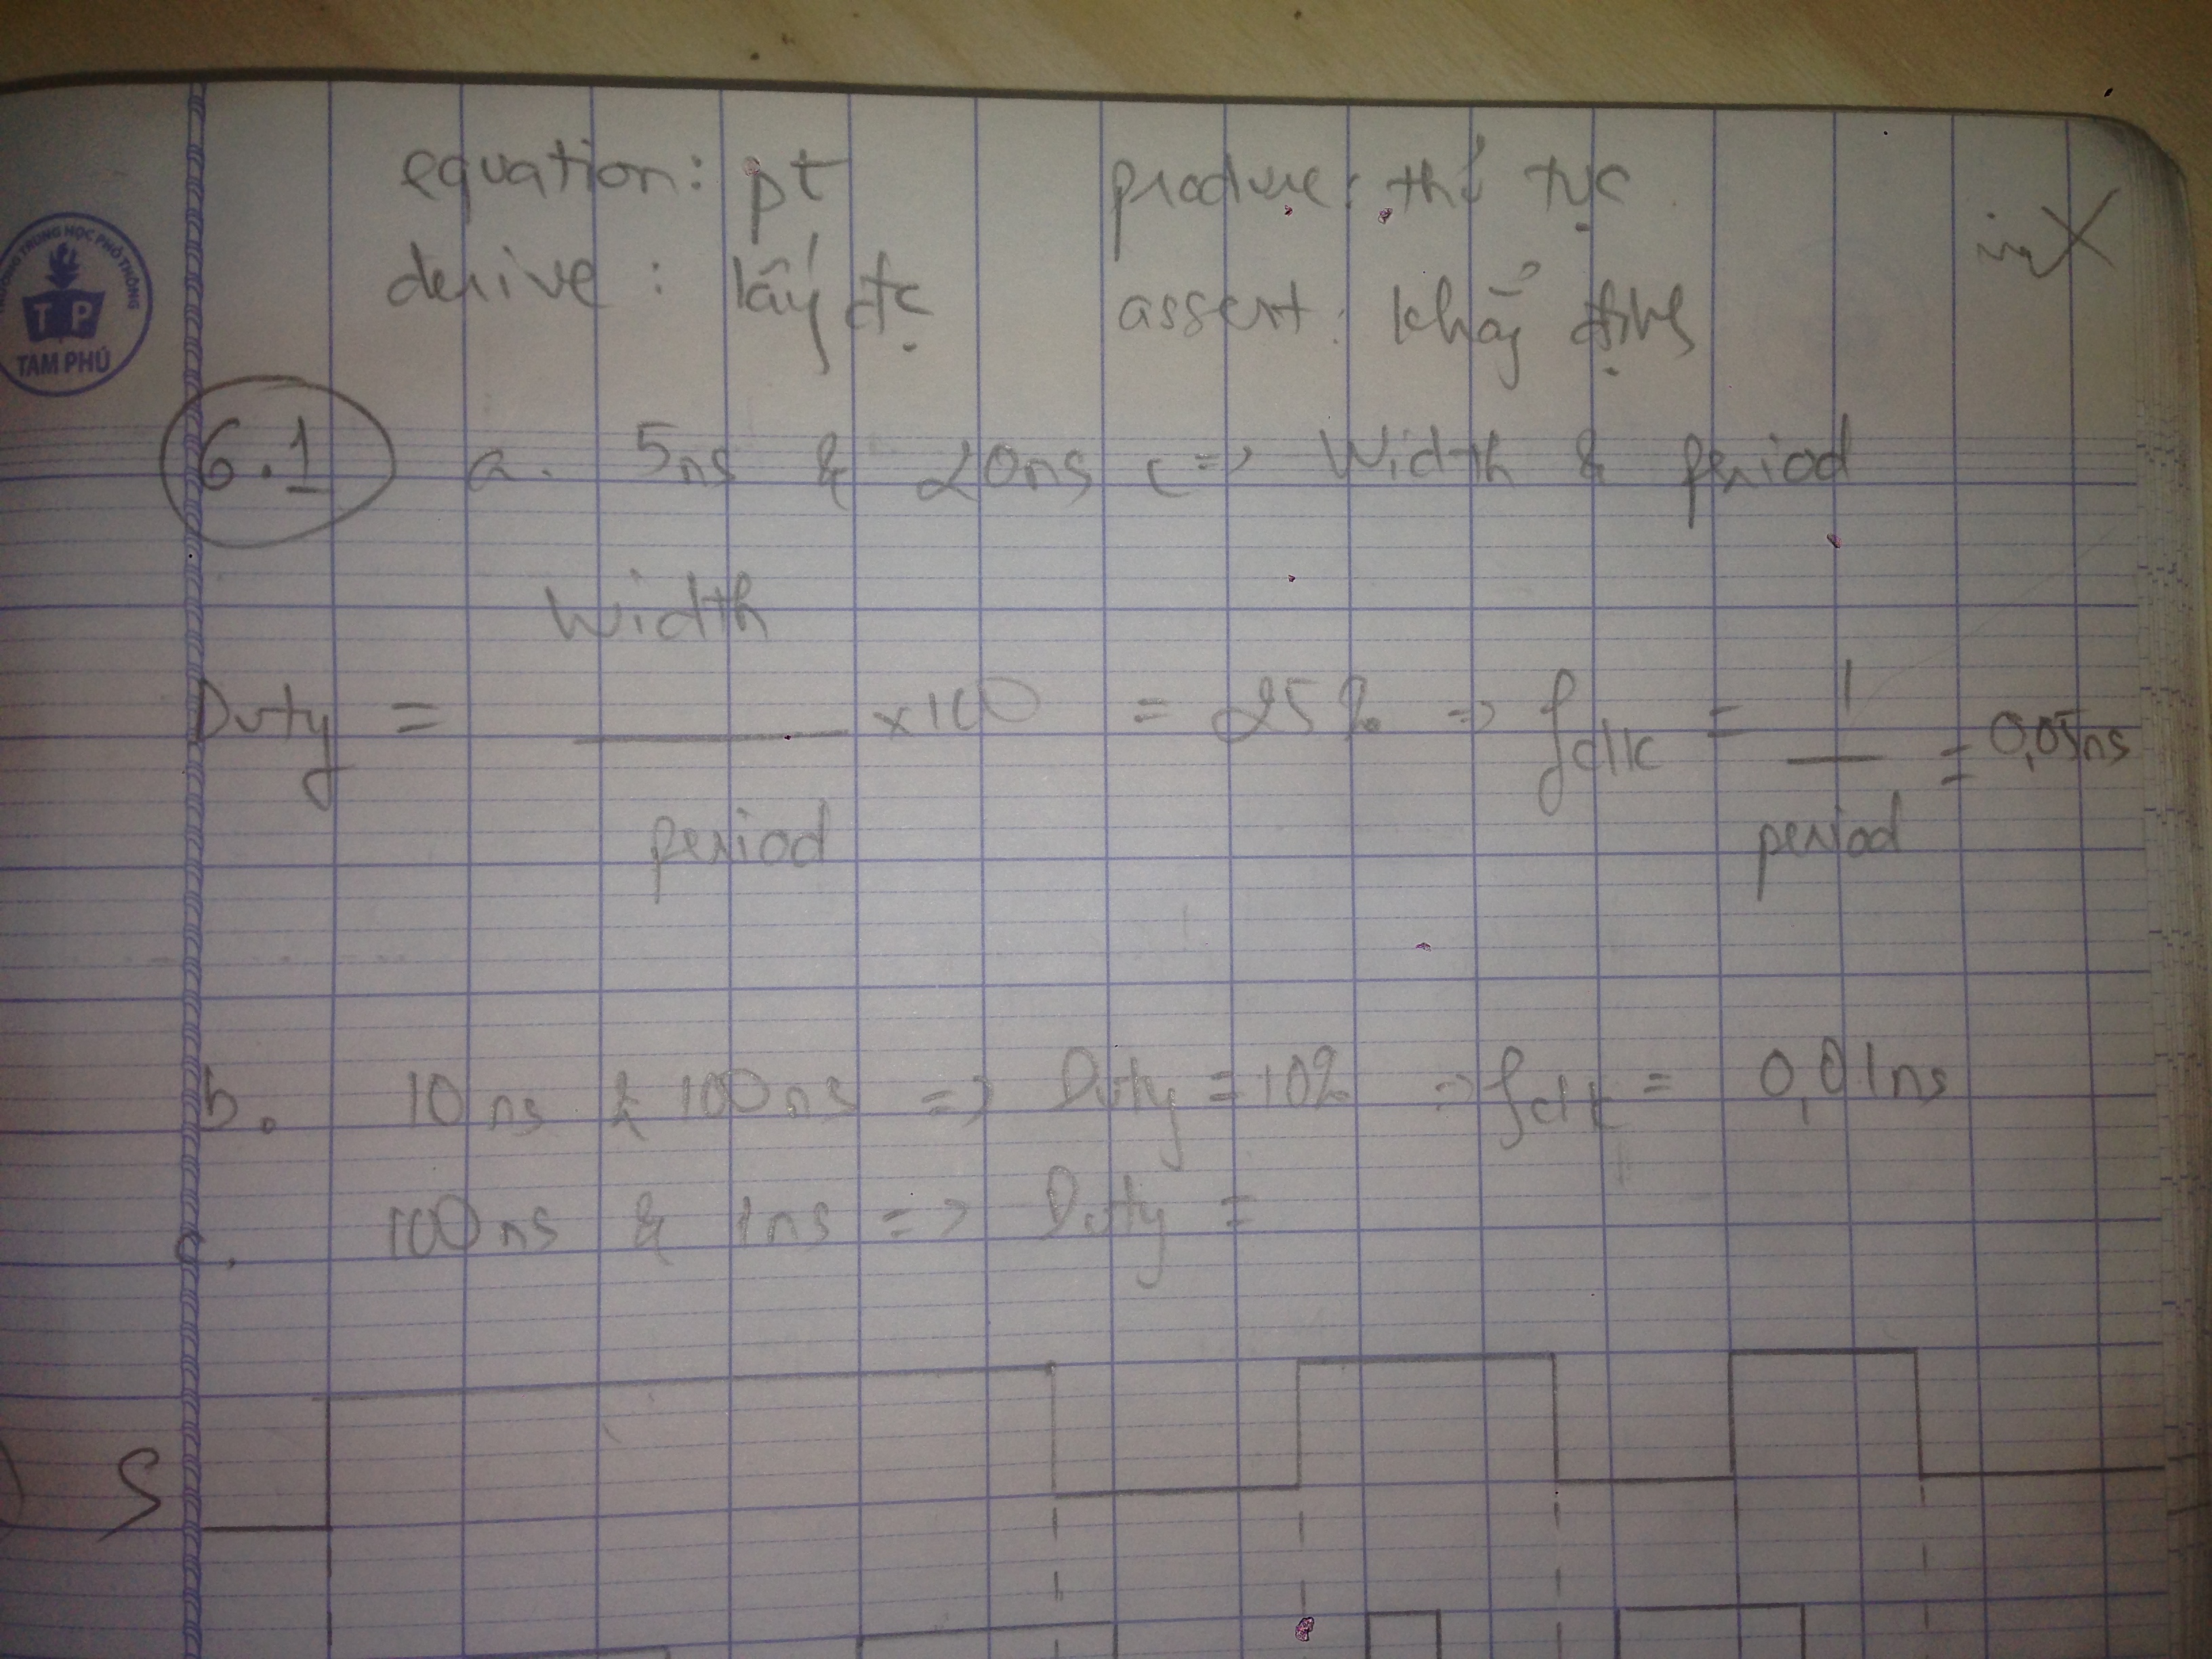 TRƯỜNG TRUNG HỌC PHỔ THÔNG
TP
TAM PHÚ
equation: pt
derive: lấy đc
assert: khẳg địng
6.1 a. 5ns & 20ns <=> Width & period
Duty = Width / period x100 = 25% => fclk = 1 / period = 0,05ns
b. 10ns & 100ns => Duty = 10% => fclk = 0,01ns
c. 100ns & 1ns => Duty =
S